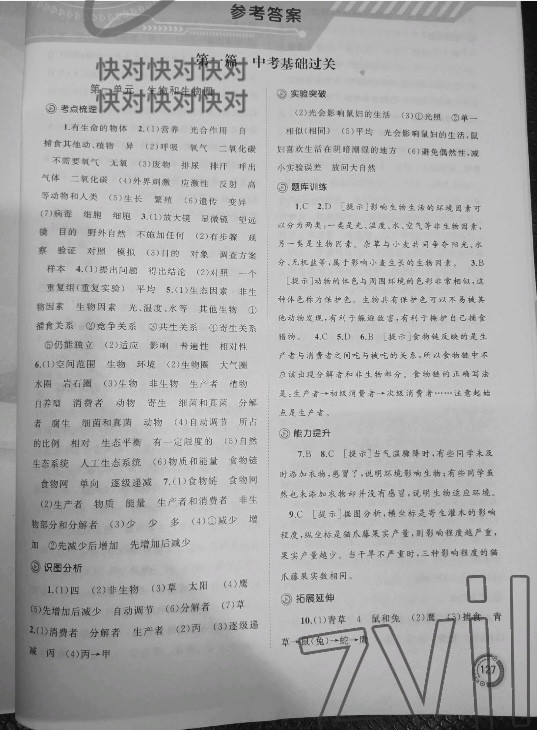 参考答案
第一篇 中考基础过关
快对快对快对
快对快对快对
第一单元 生物和生物圈
考点梳理
1.有生命的物体 2.(1)营养 光合作用 自
捕食其他动、植物 异 (2)呼吸 氧气 二氧化碳
不需要氧气 无氧 (3)废物 排尿 排汗 呼出
气体 二氧化碳 (4)外界刺激 应激性 反射 高
等动物和人类 (5)生长 繁殖 (6)遗传 变异
(7)病毒 细胞 细胞 3.(1)放大镜 显微镜 望远
镜 目的 野外自然 不施加任何 (2)有步骤 观
察 验证 对照 模拟 (3)目的 对象 调查方案
样本 4.(1)提出问题 得出结论 (2)对照 一个
重复组(重复实验) 平均 5.(1)生态因素 非生
物因素 生物因素 光、温度、水等 其他生物 ①
捕食关系 ②竞争关系 ③共生关系 ④寄生关系
⑤仍能独立 (2)适应 影响 普遍性 相对性
6.(1)空间范围 生物 环境 (2)生物圈 大气圈
水圈 岩石圈 (3)生物 非生物 生产者 植物
自养型 消费者 动物 寄生 细菌和真菌 分解
者 腐生 细菌和真菌 动物 (4)自动调节 所占
的比例 相对 生态平衡 有一定限度的 (5)自然
生态系统 人工生态系统 (6)物质和能量 食物链
食物网 单向 逐级递减 7.(1)食物链 食物网
(2)生产者 物质 能量 生产者和消费者 非生
物部分和分解者 (3)少 少 多 (4)①减少 增
加 ②先减少后增加 先增加后减少
识图分析
1.(1)四 (2)非生物 (3)草 太阳 (4)鹰
(5)先增加后减少 自动调节 (6)分解者 (7)草
2.(1)消费者 分解者 生产者 (2)丙 (3)逐级递
减 丙 (4)丙→甲
实验突破
(2)光会影响鼠妇的生活 (3)①光照 ②单一
相似(相同) (5)平均 光会影响鼠妇的生活,鼠
妇喜欢生活在阴暗潮湿的地方 (6)避免偶然性,减
小实验误差 放回大自然
题库训练
1.C 2.D [提示]影响生物生活的环境因素可
以分为两类:一类是光、温度、水、空气等非生物因素,
另一类是生物因素。杂草与小麦共同争夺阳光、水
分、无机盐等,属于影响小麦生长的生物因素。 3.B
[提示]动物的体色与周围环境的色彩非常相似,这
种体色称为保护色。生物具有保护色可以不易被其
他动物发现,有利于躲避敌害,有利于掩护自己捕食
猎物。 4.C 5.D 6.B [提示]食物链反映的是生
产者与消费者之间吃与被吃的关系,所以食物链中不
应该出现分解者和非生物部分。食物链的正确写法
是:生产者→初级消费者→次级消费者……注意起始
点是生产者。
能力提升
7.B 8.C [提示]当气温骤降时,有些同学未及
时添加衣物,感冒了,说明环境影响生物;有些同学虽
然也未添加衣物却并没有感冒,说明生物适应环境。
9.C [提示]据图分析,横坐标是寄生灌木的影响
程度,纵坐标是猫爪藤果实产量,则影响程度越严重,
果实产量越少。当干旱不严重时,三种影响程度的猫
爪藤果实数相同。
拓展延伸
10.(1)青草 4 鼠和兔 (2)鹰 (3)捕食 青
草→鼠(兔)→蛇→鹰
127
zyil